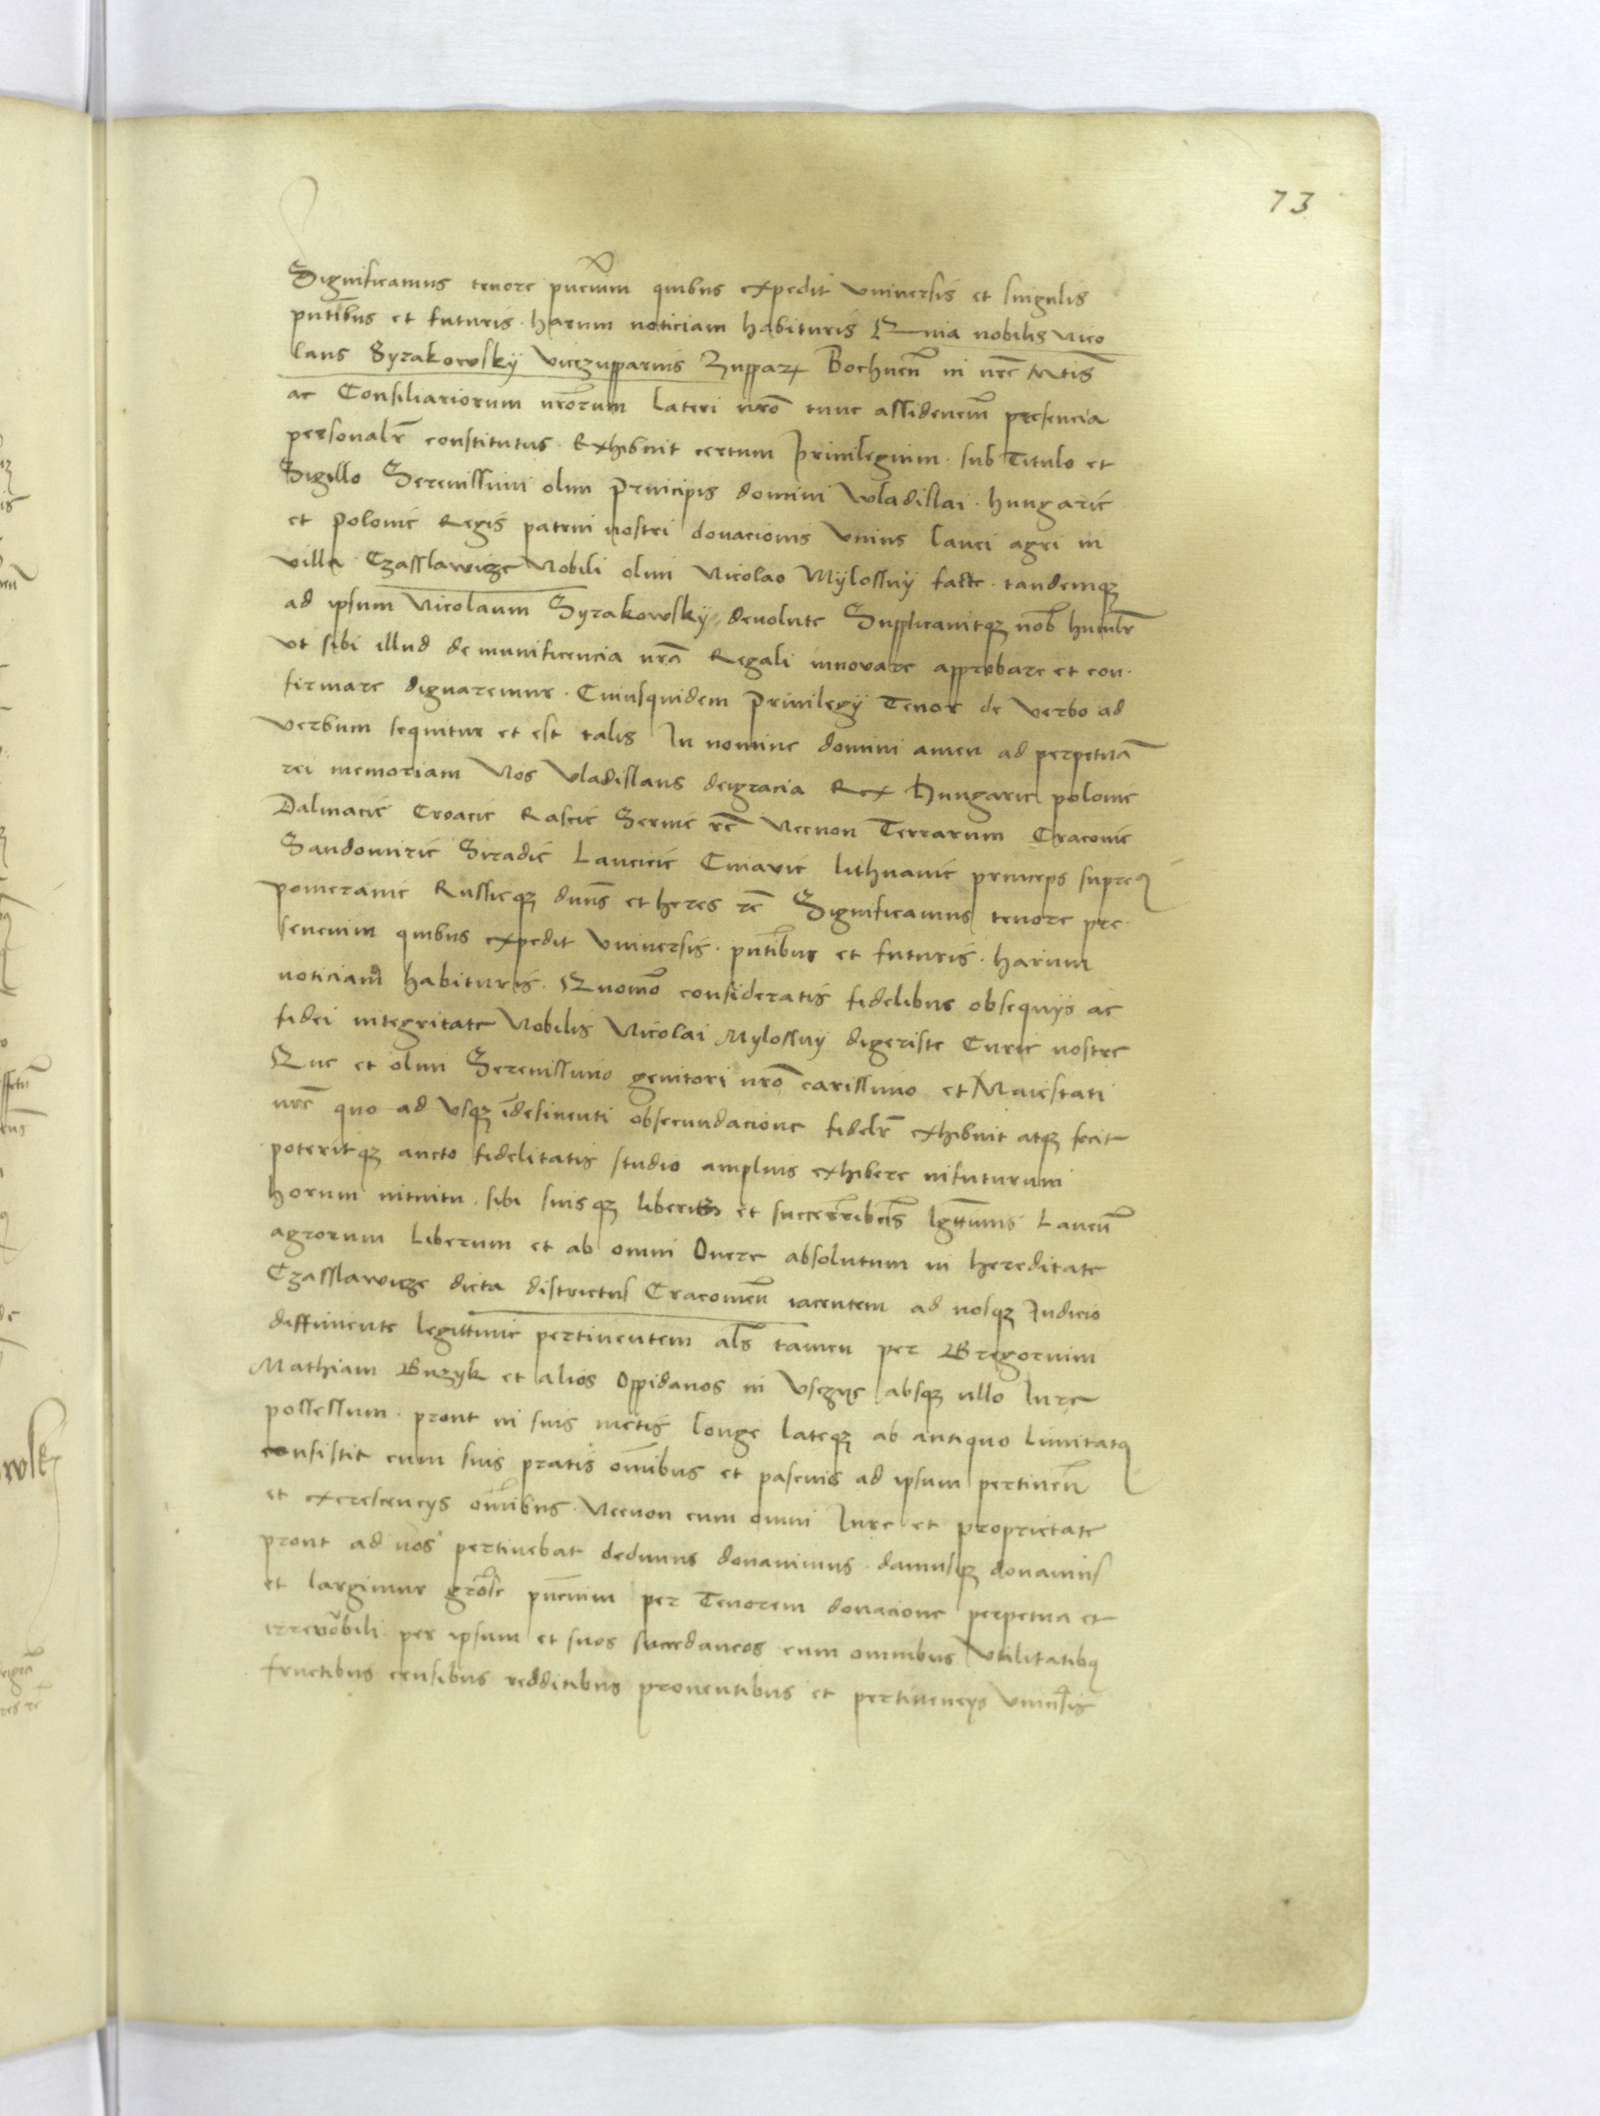 73
Significamus tenore pñcium quibus expedit vniversis et singulis
pñtibus et futuris. harum noticiam habituris Quia nobilis Nico
laus Syrakowskÿ vicezupparius Zupparꝝ Bochneñ in nrẽ
ac Consiliariorum nrõrum lateri nrõ tunc assidenciũ presencia
personalr̃ constitutus. Exhibuit certum Privilegium. sub Titulo et
Sigillo Serenissimi olim Principis domini Wladislai. Hungarie
et Polonie Regis patrui nostri donacionis vnius lanei agri in
villa Czasslawicze Nobili olim Nicolao Mylossuy facte. tandemqꝫ
ad ipsum Nicolaum Syrakowskÿ devolute Supplicavitqꝫ nob̃ humilr̃
vt sibi illud de munificencia nrã Regali innovare approbare et con-
firmare dignaremur. Cuiusquidem Privilegÿ Tenor de verbo ad
verbum sequitur et est talis In nomine domini amen ad perpetuã
rei memoriam Nos Vladislaus deigracia Rex Hungarie polonie
Dalmacie Croacie Rascie Servie rẽ Necnon Terrarum Cracovie
Sandomirie Siradie Lancicie Cuiavie lithuanie princeps supreꝰ
pomeranie Russieqꝫ dnũs et heres rẽ Significamus tenore pre-
sencium quibus expedit vniversis. pñtibus et futuris. harum
noticiam habituris. Quomõ consideratis fidelibus obsequÿs ac
fidei integritate Nobilis Nicolai Mylossuy digeriste Curie nostre
Que et olim Serenissimo genitori nrõ carissimo et Maiestati
nrẽ quo ad vsqꝫ ĩdesinenti obsecundacione fidelr̃ exhibuit atqꝫ fecit
poteritqꝫ aucto fidelitatis studio amplius exhibere infuturum
horum intuitu. sibi suisqꝫ liberis et lgittimis Laneũ
agrorum liberum et ab omni Onere absolutum in hereditate
Czasslawicze dicta districtus Cracovieñ iacentem ad nosqꝫ Iudicio
diffiniente legittime pertinentem als̃ tamen per Gregorium
Mathiam Guzyk et alios Oppidanos in Vsczye absqꝫ ullo Iure
possessum. prout in suis metis longe lateqꝫ ab antiquo limitatꝰ
consistit cum suis pratis om̃ibus et pascuis ad ipsum pertineñ
et excrescencÿs om̃ibus. Necnon cum omni Iure et proprietate
prout ad nos pertinebat dedimus donavimus. damusqꝫ donamus
et largimur grõse pñcium per Tenorem donacione perpetua et
irrevõbili per ipsum et suos succedaneos cum omnibus vtilitatibꝰ
fructibus censibus redditibus proventibus et pertinencÿs vniṽsis